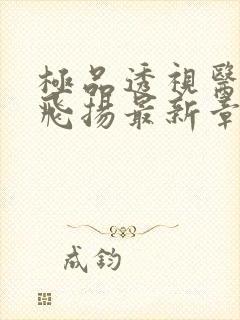 極品透視醫
飛揚最新章
成鈞